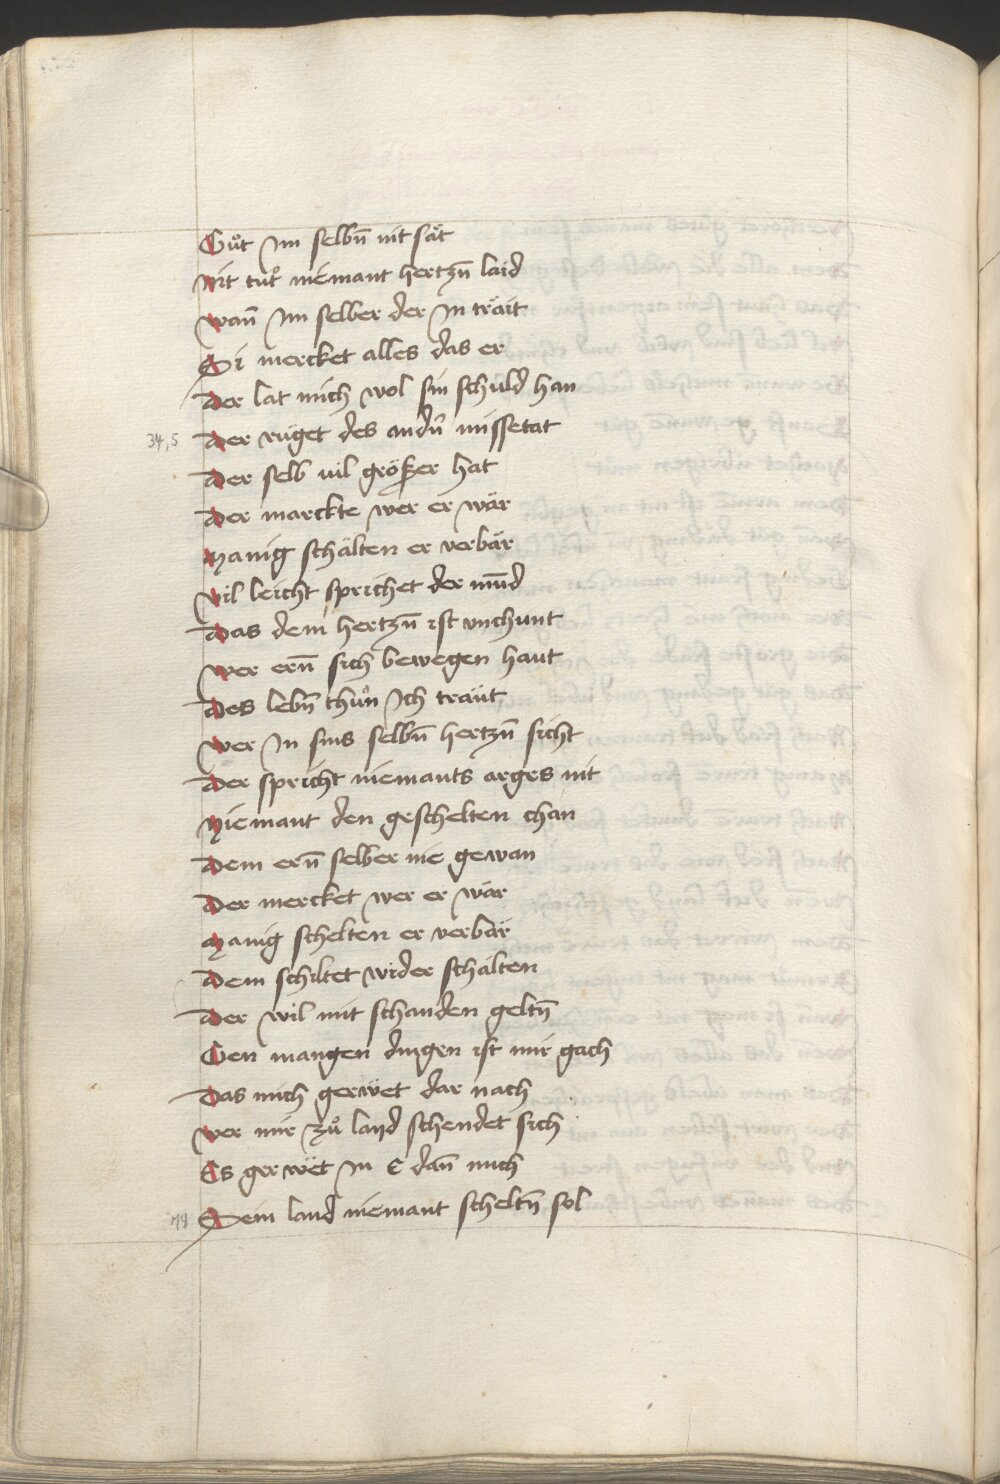 Guͦt Im selbn̄ nit saͤt
Nit tuͦt niemant hertzn̄ laid
Wan̄ Im selber der In träit
Er mercket alles das er
Der lat mich wol sin schuld han
34,5 Der rüget des andn̄ missetat
Der selb vil größer hat
Der marckte wer er wär
Manig schälten er verbär
Vil leicht sprichet der mūnd
Das dem hertzn̄ ist vnchunt
Wer ern̄ sich bewegen haut
Des lebn̄ thuͦn Ich träut
Wer In sins selbn̄ hertzn̄ sicht
Der spricht niemants arges nit
Niemant den geschelten chan
Dem ern̄ selber nie gewan
Der mercket wer er wär
Manig schelten er verbär
Dem schiltet wider schälten
Der wil mit schanden geltn̄
Gen mangen dingen ist mir gach
Das mich gerwet dar nach
Wer mir zuͦ land schendet sich
Es gerwet In E dan̄ mich
Dem land niemant scheltn̄ sol